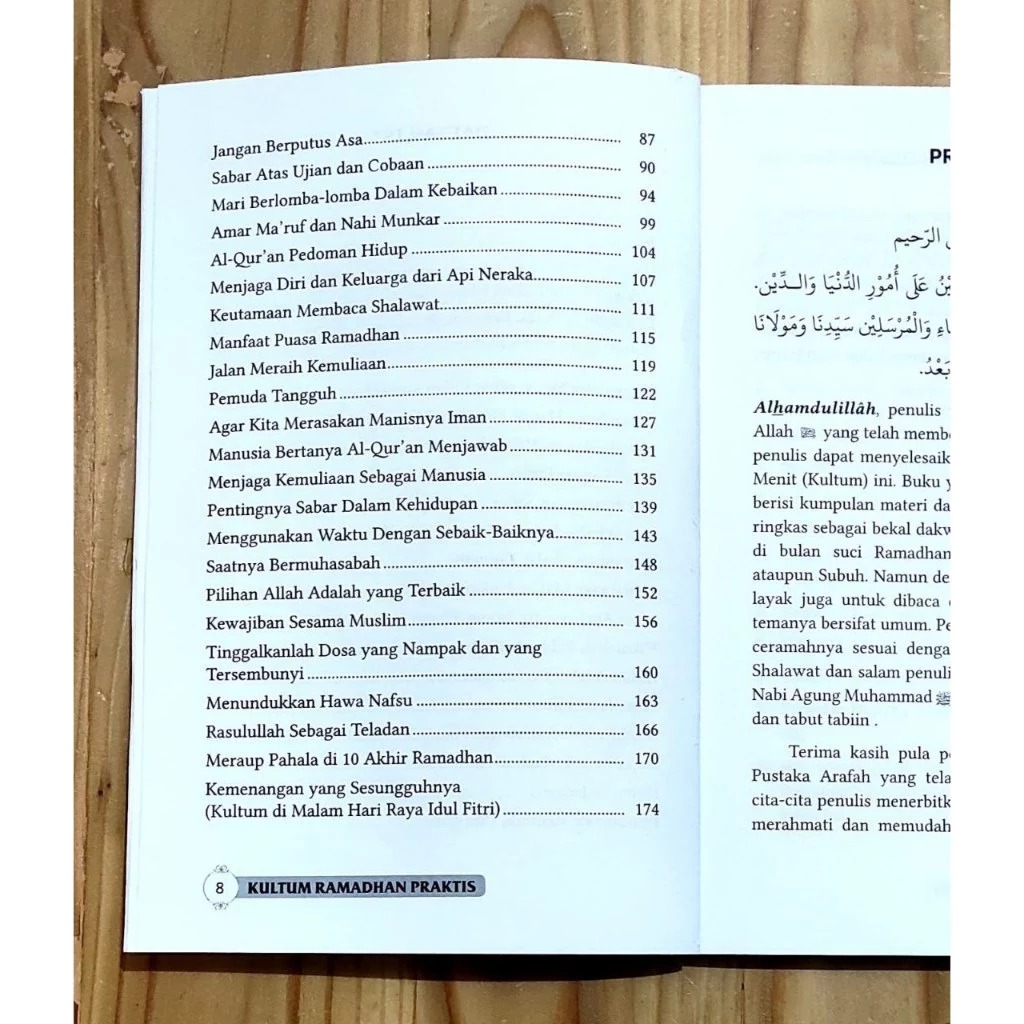 Jangan Berputus Asa.......... 87
Sabar Atas Ujian dan Cobaan .......... 90
Mari Berlomba-lomba Dalam Kebaikan .......... 94
Amar Ma'ruf dan Nahi Munkar .......... 99
Al-Qur'an Pedoman Hidup .......... 104
Menjaga Diri dan Keluarga dari Api Neraka.......... 107
Keutamaan Membaca Shalawat.......... 111
Manfaat Puasa Ramadhan .......... 115
Jalan Meraih Kemuliaan.......... 119
Pemuda Tangguh .......... 122
Agar Kita Merasakan Manisnya Iman .......... 127
Manusia Bertanya Al-Qur'an Menjawab .......... 131
Menjaga Kemuliaan Sebagai Manusia .......... 135
Pentingnya Sabar Dalam Kehidupan .......... 139
Menggunakan Waktu Dengan Sebaik-Baiknya.......... 143
Saatnya Bermuhasabah .......... 148
Pilihan Allah Adalah yang Terbaik .......... 152
Kewajiban Sesama Muslim.......... 156
Tinggalkanlah Dosa yang Nampak dan yang
Tersembunyi .......... 160
Menundukkan Hawa Nafsu .......... 163
Rasulullah Sebagai Teladan .......... 166
Meraup Pahala di 10 Akhir Ramadhan.......... 170
Kemenangan yang Sesungguhnya
(Kultum di Malam Hari Raya Idul Fitri) .......... 174
8 KULTUM RAMADHAN PRAKTIS
PR
الرّحيم
عَلَى أُمُوْرِ الدُّنْيَا وَالدِّيْنِ.
وَالْمُرْسَلِيْن سَيِّدِنَا وَمَوْلَانَا
بَعْدُ.
Alhamdulillâh, penulis
Allah ﷻ yang telah membe
penulis dapat menyelesaik
Menit (Kultum) ini. Buku y
berisi kumpulan materi da
ringkas sebagai bekal dakw
di bulan suci Ramadhan
ataupun Subuh. Namun de
layak juga untuk dibaca
temanya bersifat umum. Pe
ceramahnya sesuai denga
Shalawat dan salam penuli
Nabi Agung Muhammad ﷺ
dan tabut tabiin .
Terima kasih pula p
Pustaka Arafah yang tela
cita-cita penulis menerbitk
merahmati dan memudah